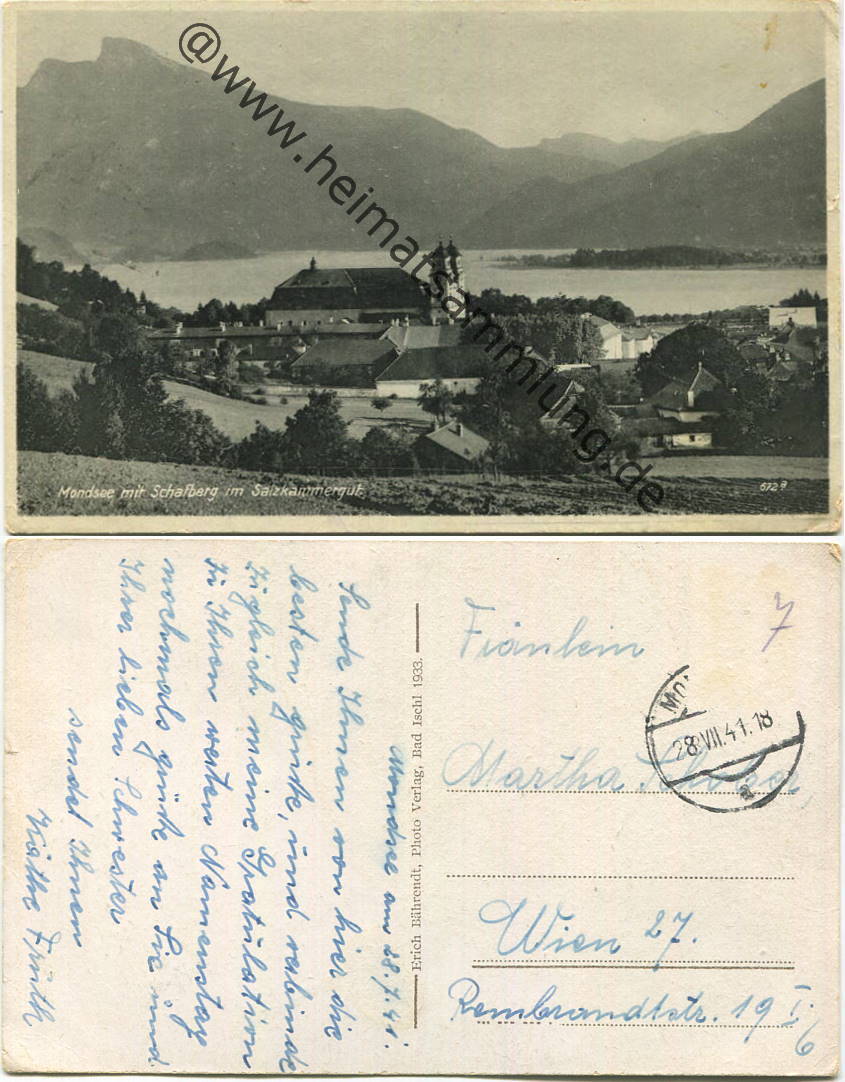 @www.heimatsammlung.de
Mondsee mit Schafberg im Salzkammergut
672a
Mondsee am 28.7.41.
Sende Ihnen von hier die
besten grüße, und verbinde
zugleich meine Gratulation
zu Ihrem werten Namenstag
nochmals grüße an Sie und
Ihrer lieben Schwester
sendet Ihnen
Käthe
Erich Bährendt, Photo Verlag, Bad Ischl 1933.
7
28.VII.41.18
a
Fräulein
Martha
Wien 27.
Rembrandtstr. 19 I/6